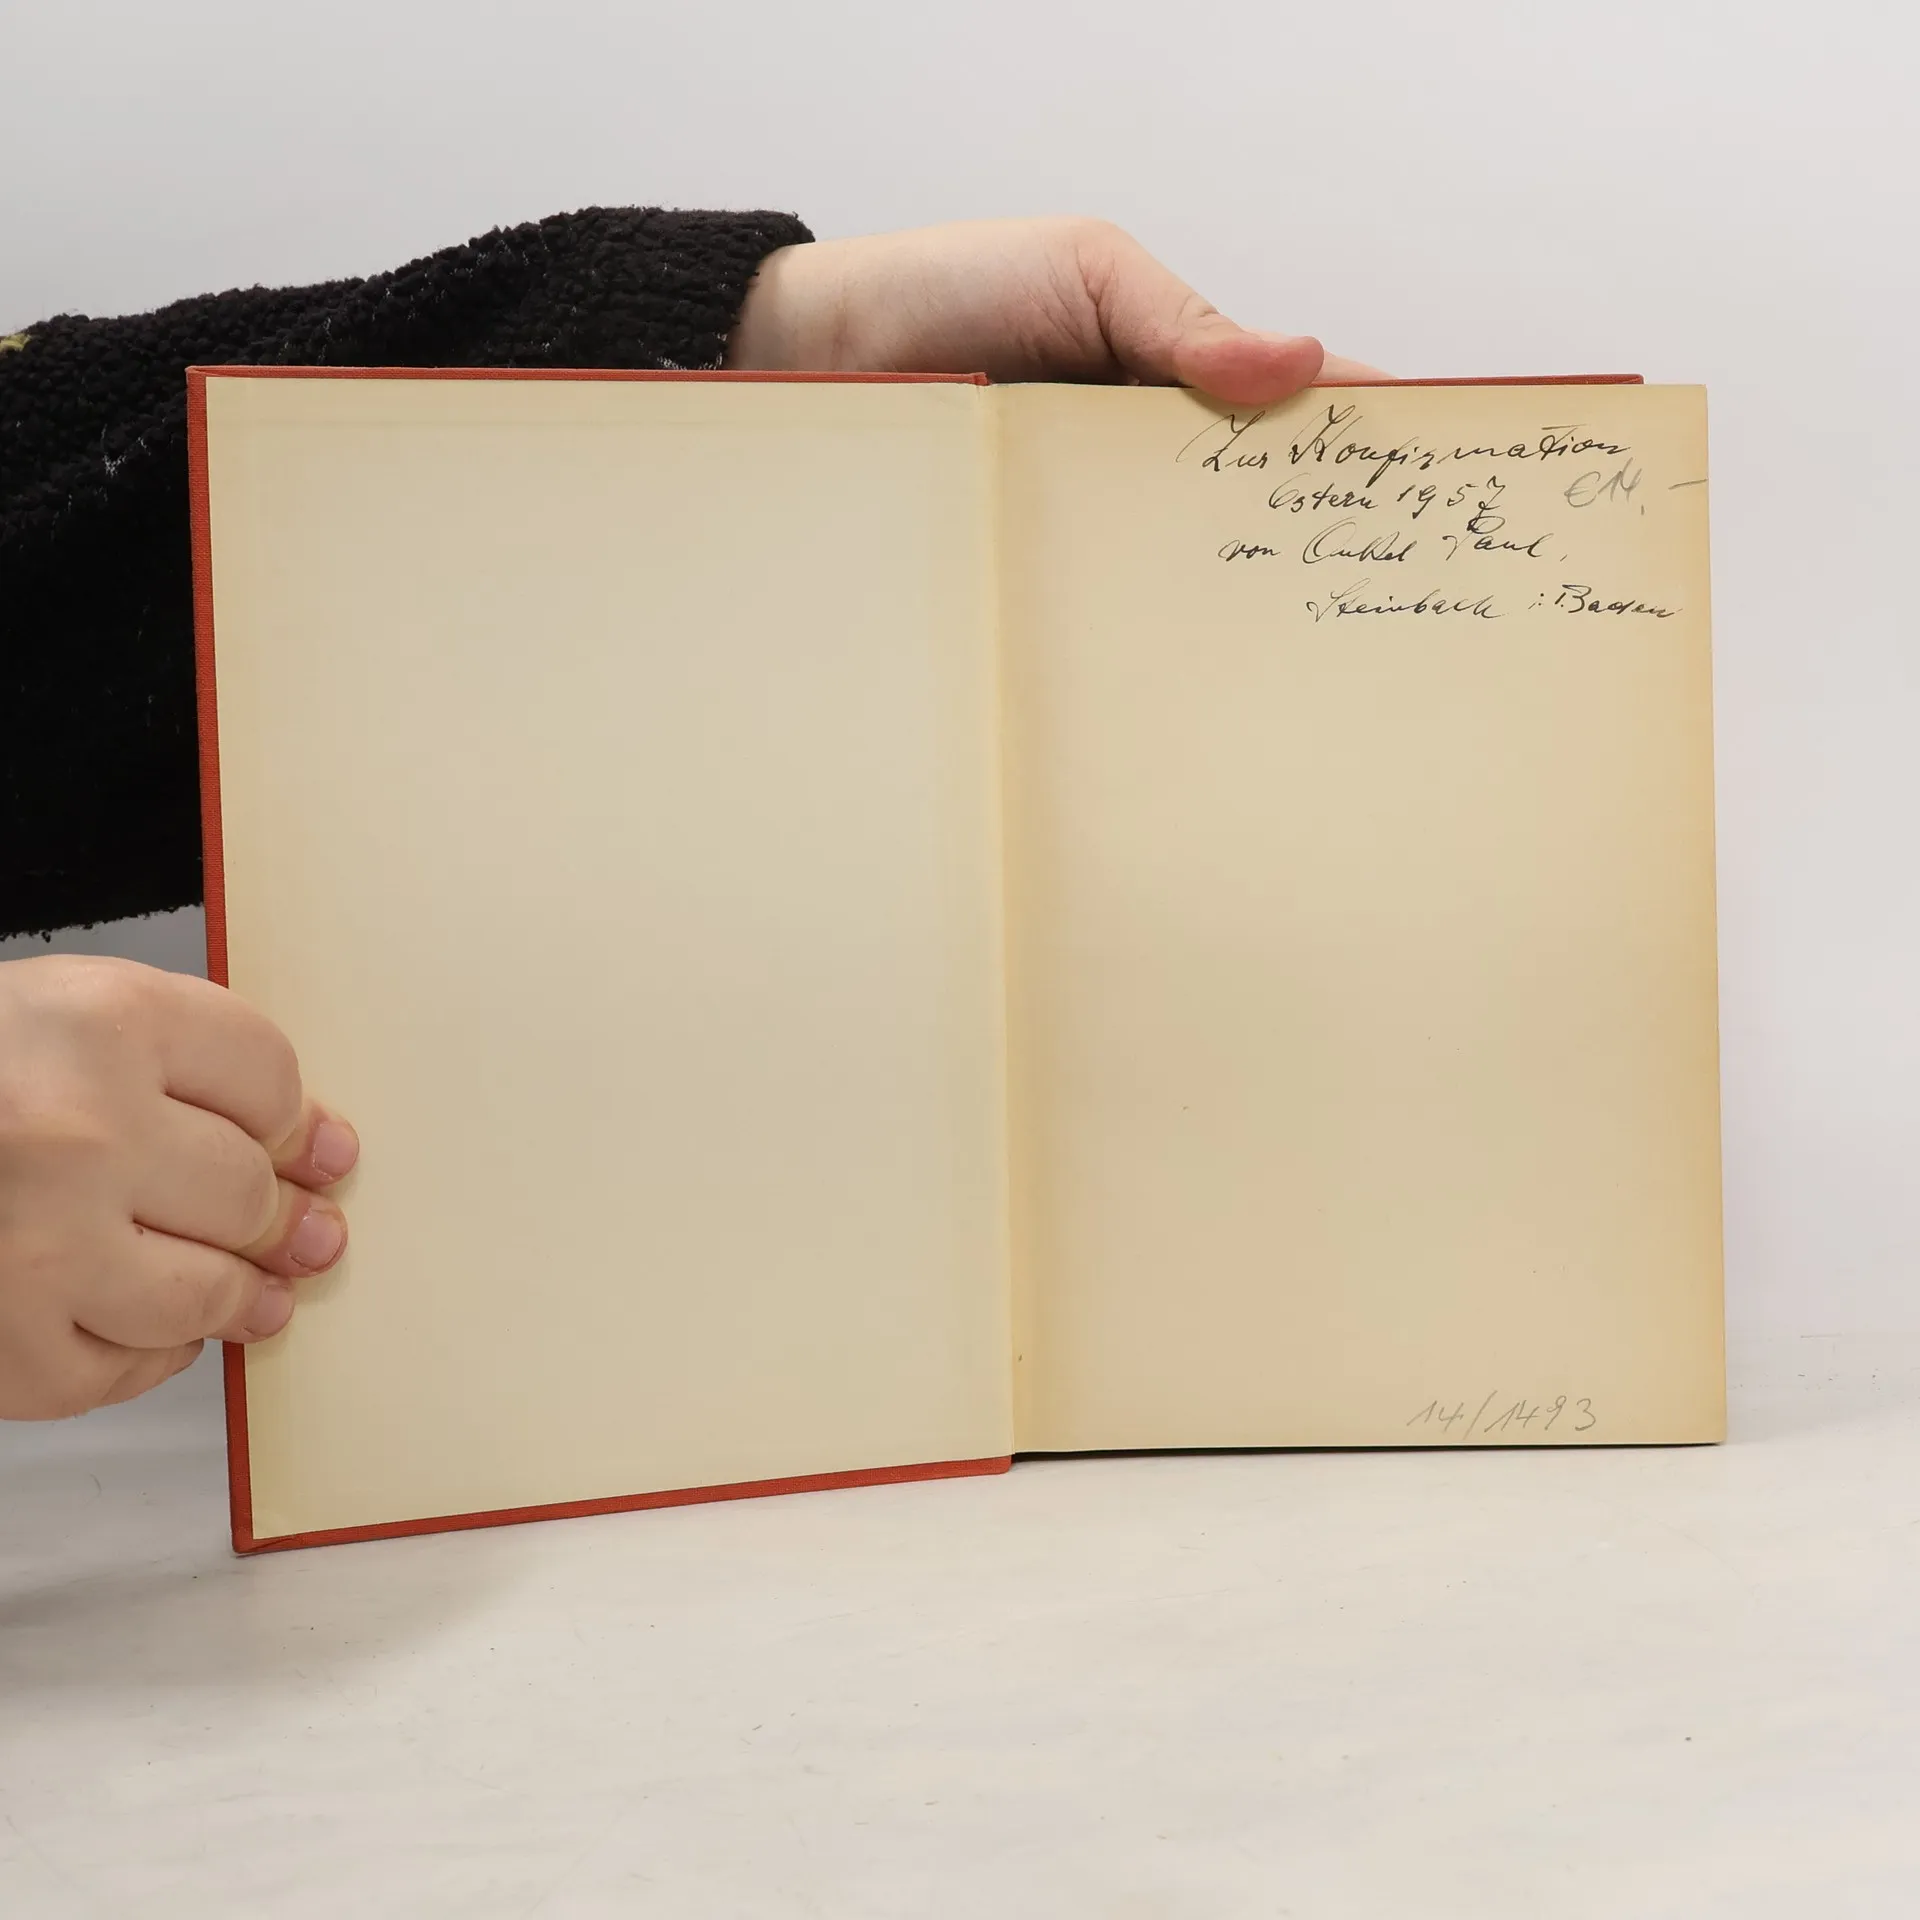 Zur Konfirmation
Ostern 1957 €14,-
von Onkel Paul,
Steinbach i. Baden
14/1493